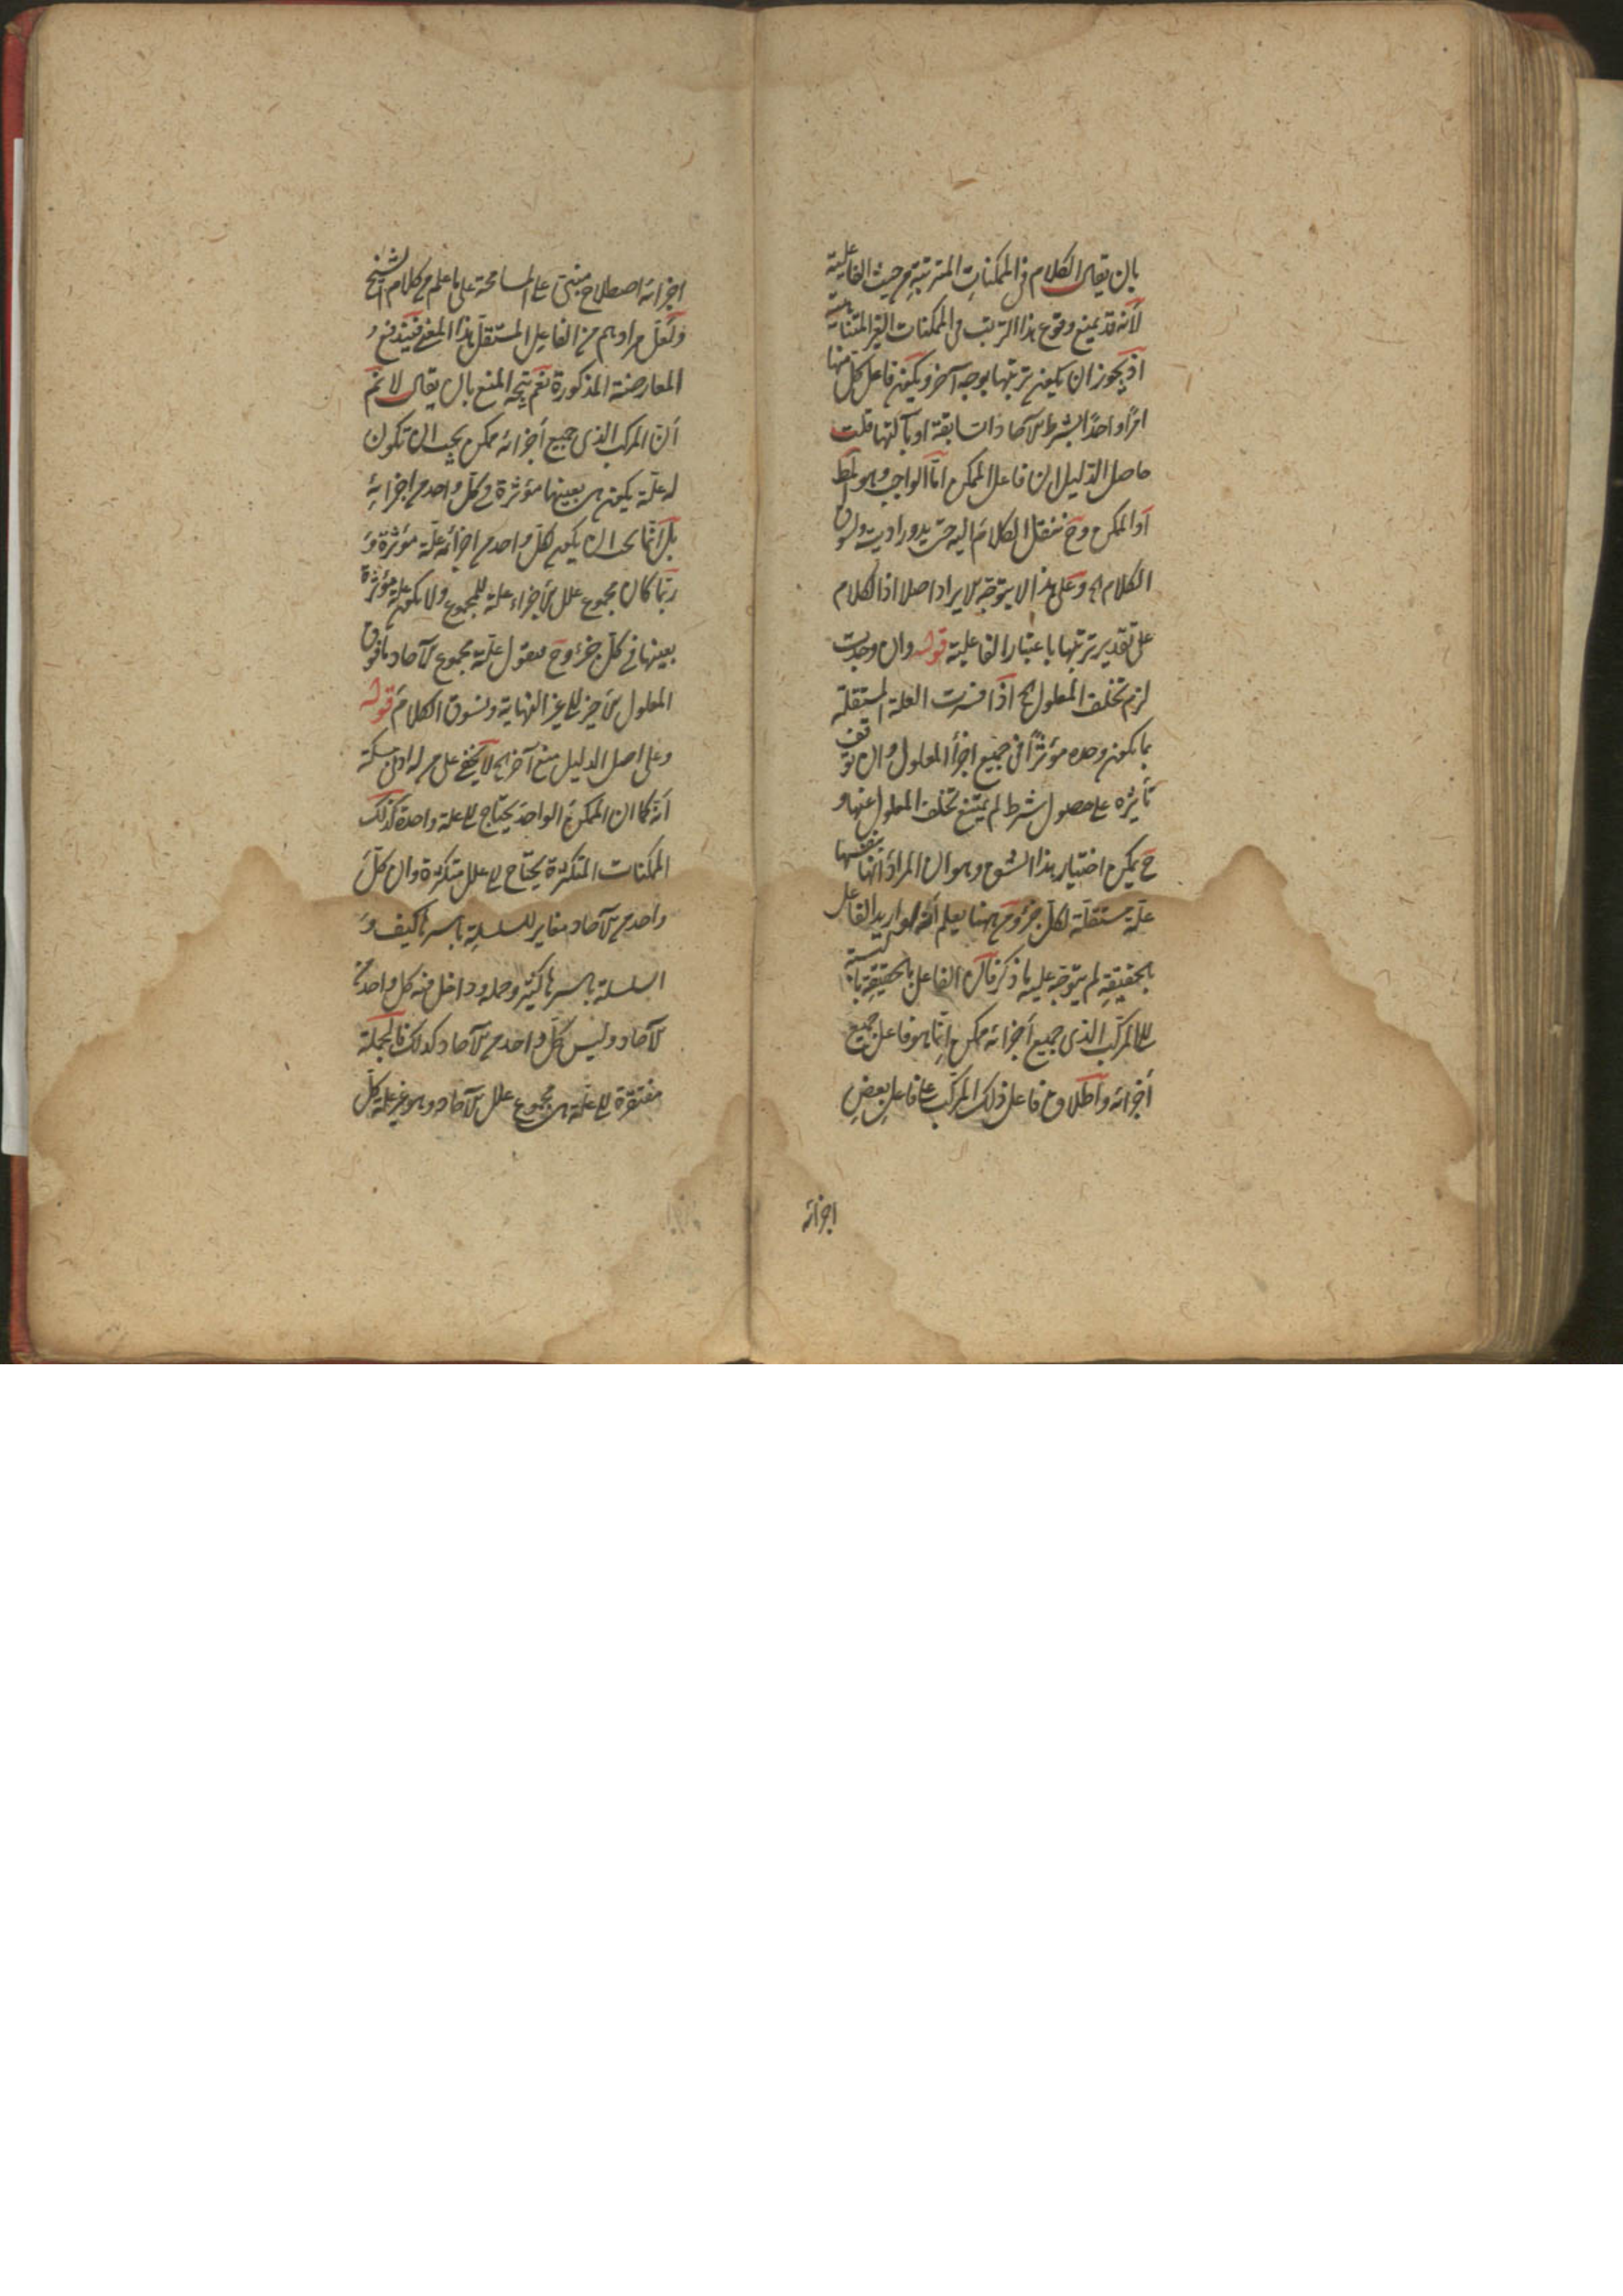 بان يقال الكلام في الممكنات المترتبة من حيث الفاعلية
لانه قد يمنع وقوع هذا الترتب في الممكنات الغير المتناهية
اذ يجوز ان يكون ترتبها بوجه آخر ويكون فاعل كل منها
امرا واحدا بشرط الآحاد السابقة او بآلتها قلت
حاصل الدليل ان فاعل الممكن اما الواجب وهو المط
او الممكن وح ننقل الكلام اليه حتى يدور او يت ونسوق
الكلام اه وعلى هذا لا يتوجه الايراد اصلا اذ الكلام
على تقدير ترتبها باعتبار الفاعلية قوله وان وجدت
لزم تخلف المعلول اه اذا فسرت العلة المستقلة
بما يكون وحده مؤثرا في جميع اجزأ المعلول وان توقف
تأثيره على حصول شرط لم يمتنع تخلف المعلول عنها و
ح يمكن اختيار هذا الشق وهو ان المراد انها بنفسها
علة مستقلة لكل جزؤ ومن ههنا يعلم انه لو اريد الفاعل
بالحقيقة لم يتوجه عليه ما ذكر فان الفاعل بالحقيقة بالنسبة
الى المركب الذي جميع أجزائه ممكن انما هو فاعل جميع
أجزائه واطلاق فاعل ذلك المركب على فاعل بعض
اجزائه
اجزائه اصطلاح مبني على المسامحة على ما علم من كلام الشيخ
ولعل مرادهم من الفاعل المستقل هذا المعنى فيندفع
المعارضة المذكورة نعم يتجه المنع بان يقال لا نم
أن المركب الذي جميع أجزائه ممكن يجب ان تكون
له علة يكون هي بعينها مؤثرة في كل واحد من اجزائه
بل انما يجب ان يكون لكل واحد من اجزائه علة مؤثرة و
ربما كان مجموع علل الأجزاء علة للمجموع ولا يكون علة مؤثرة
بعينها في كل جزء وح نقول علة مجموع الآحاد ما فوق
المعلول الأخير الى غير النهاية ونسوق الكلام قوله
وعلى اصل الدليل منع آخر اه لا يخفى على من له ادنى مسكة
أنه كما ان الممكن الواحد يحتاج الى علة واحدة كذلك
الممكنات المتكثرة يحتاج الى علل متكثرة وان كل
واحد من الآحاد مغاير للسلسلة باسرها كيف و
السلسلة باسرها كثير وحده وداخل فيه كل واحد من
الآحاد وليس كل واحد من الآحاد كذلك فالجملة
مفتقرة الى علة هي مجموع علل الآحاد وهو غير علة كل